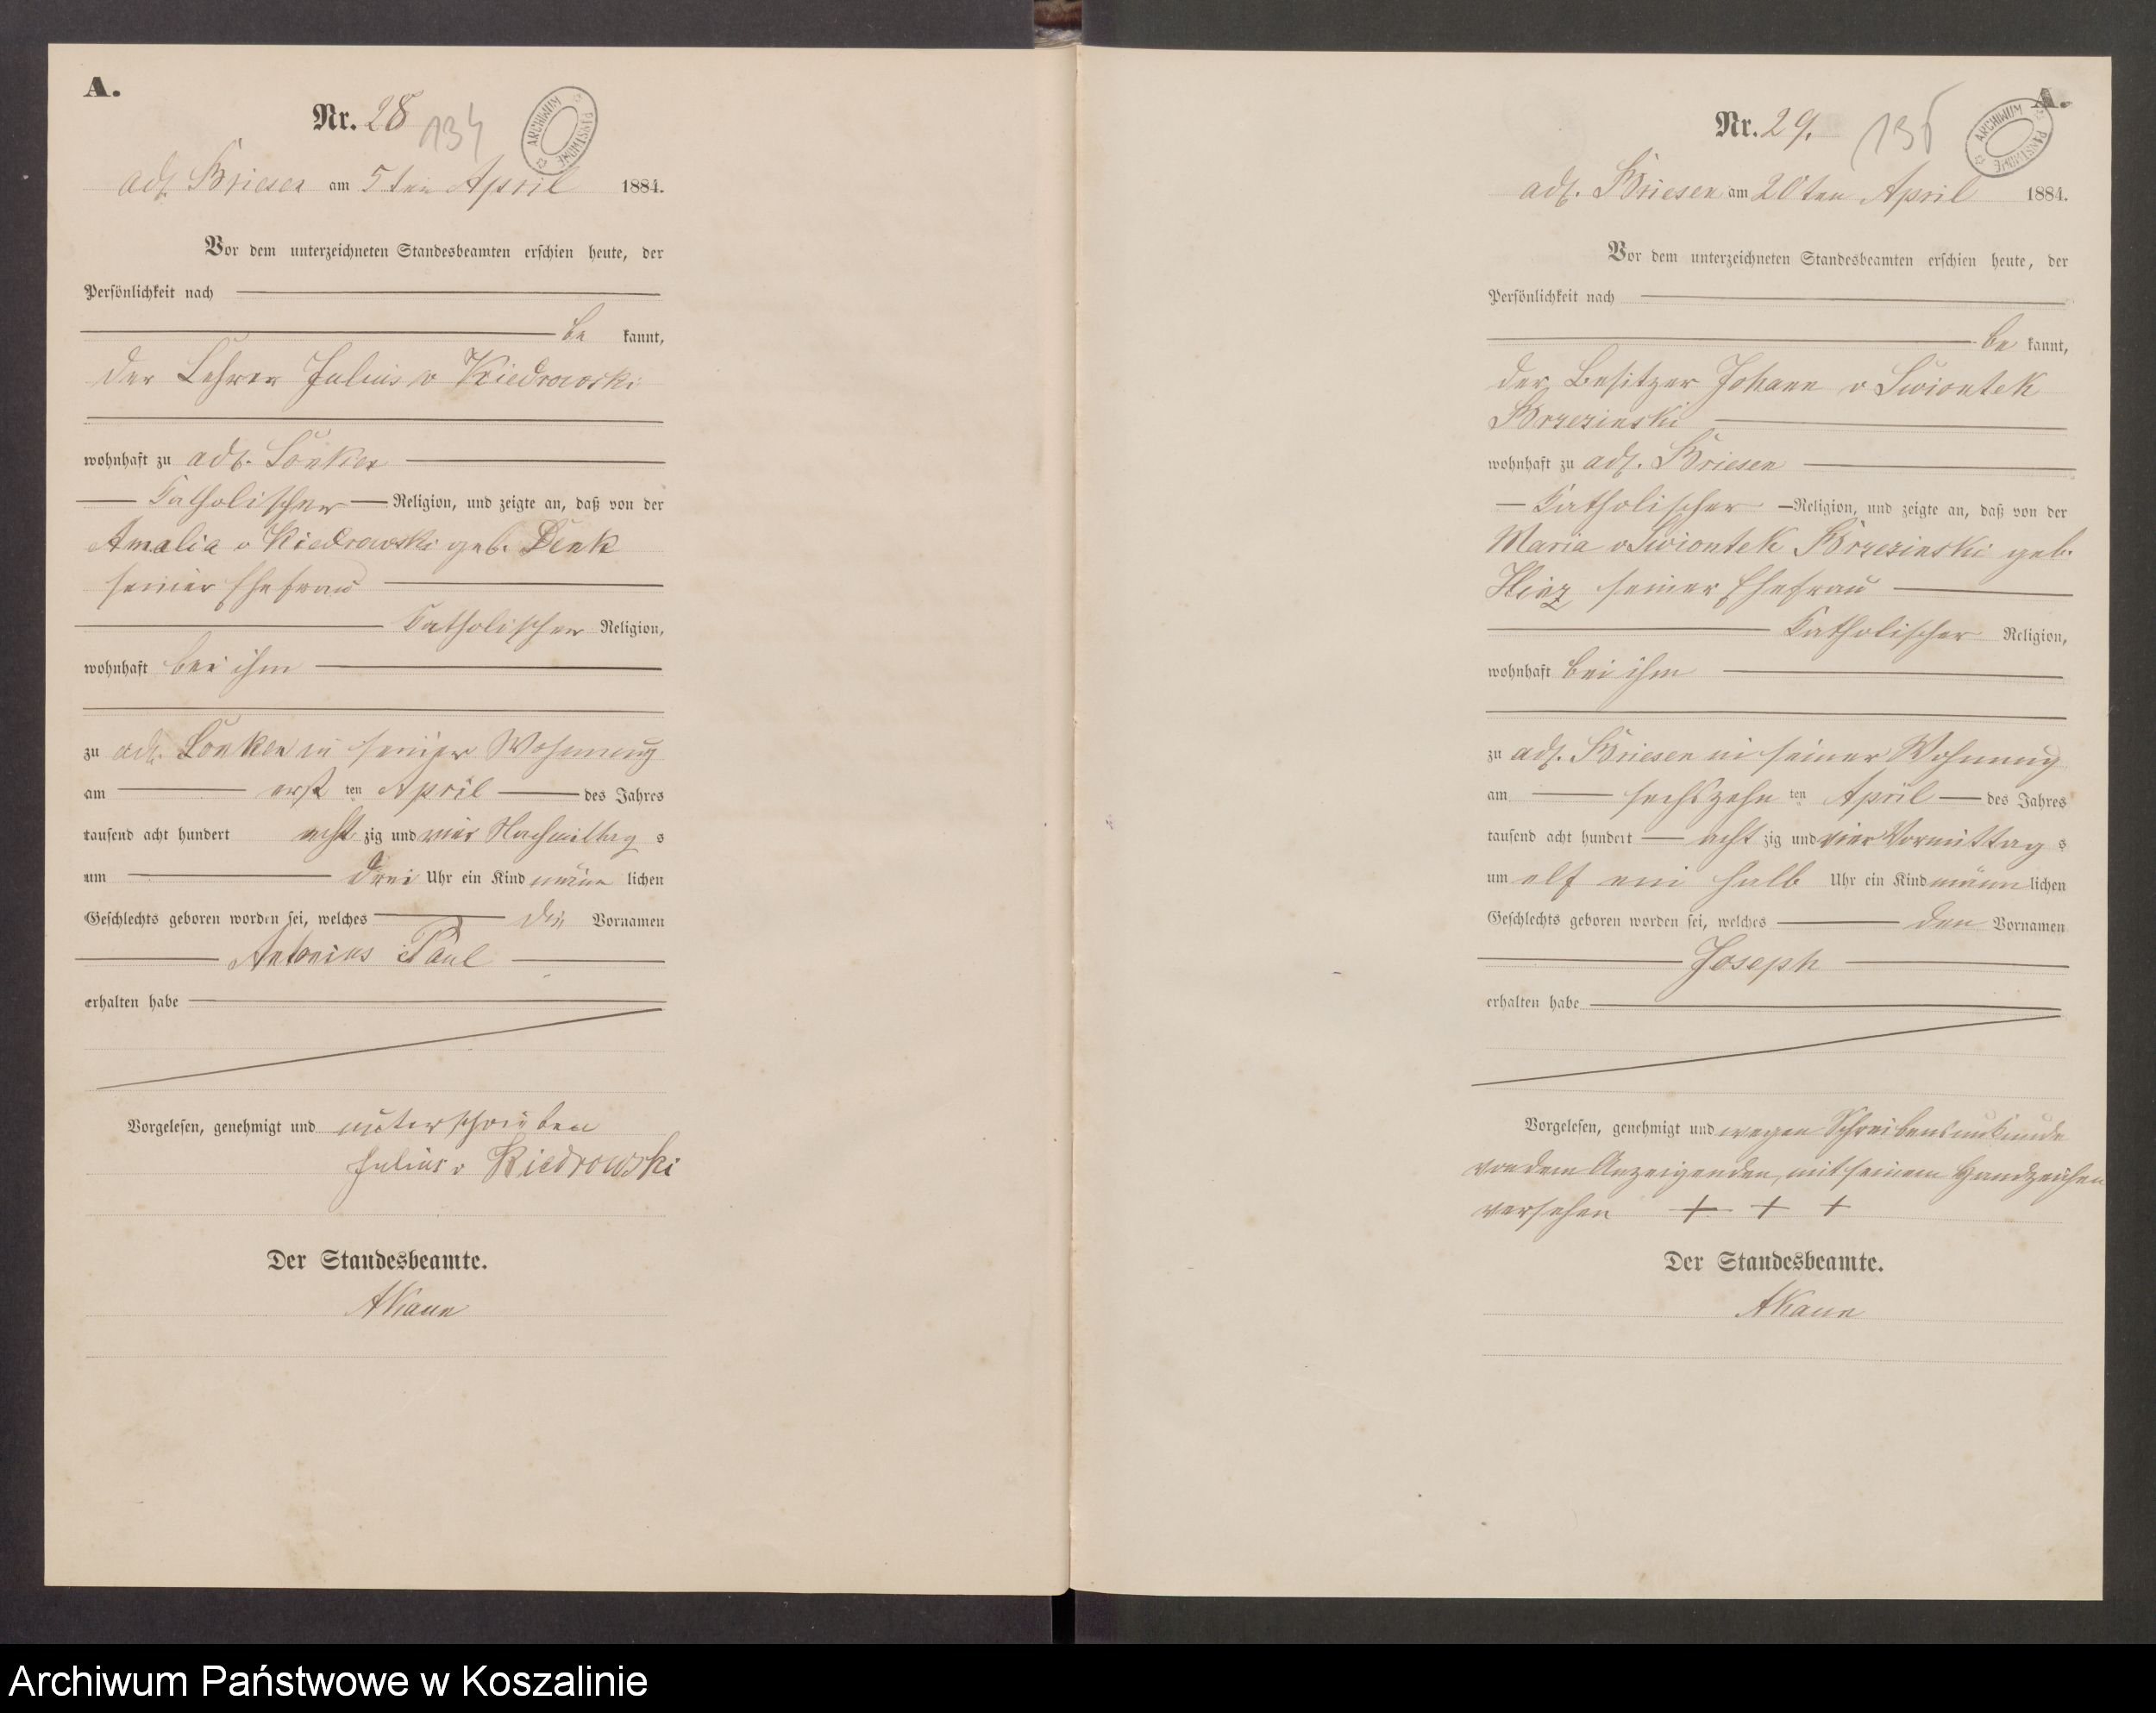 A.
Nr. 28
134
ARCHIWUM PAŃSTWOWE
adl. Briesen am 5ten April 1884.
Vor dem unterzeichneten Standesbeamten erschien heute, der
Persönlichkeit nach
be kannt,
der Lehrer Julius v Kiedrowski
wohnhaft zu adl. Lonken
Katholischer Religion, und zeigte an, daß von der
Amalia v Kiedrowski geb. Denk
seiner Ehefrau
Katholischer Religion,
wohnhaft bei ihm
zu adl. Lonken in seiner Wohnung
am erst ten April des Jahres
tausend acht hundert acht zig und vier Nachmittag s
um drei Uhr ein Kind männ lichen
Geschlechts geboren worden sei, welches die Vornamen
Antonius Paul
erhalten habe
Vorgelesen, genehmigt und unterschrieben
Julius v Kiedrowski
Der Standesbeamte.
A.
Nr. 29.
135
ARCHIWUM PAŃSTWOWE
adl. Briesen am 20ten April 1884.
Vor dem unterzeichneten Standesbeamten erschien heute, der
Persönlichkeit nach
be kannt,
der Besitzer Johann v Swiontek
Brzezinski
wohnhaft zu adl. Briesen
Katholischer Religion, und zeigte an, daß von der
Maria v Swiontek Brzezinski geb.
seiner Ehefrau
Katholischer Religion,
wohnhaft bei ihm
zu adl. Briesen in seiner Wohnung
am sechszehn ten April des Jahres
tausend acht hundert acht zig und vier Vormittag s
um elf ein halb Uhr ein Kind männ lichen
Geschlechts geboren worden sei, welches den Vornamen
Joseph
erhalten habe
Vorgelesen, genehmigt und wegen Schreibensunkunde
von dem Anzeigenden, mit seinem Handzeichen
versehen + + +
Der Standesbeamte.
Archiwum Państwowe w Koszalinie